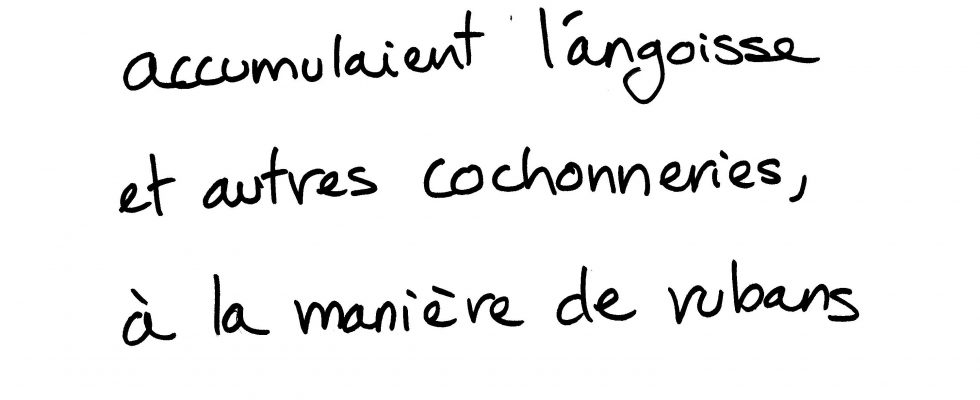 accumulaient l'angoisse
et autres cochonneries,
à la manière de rubans